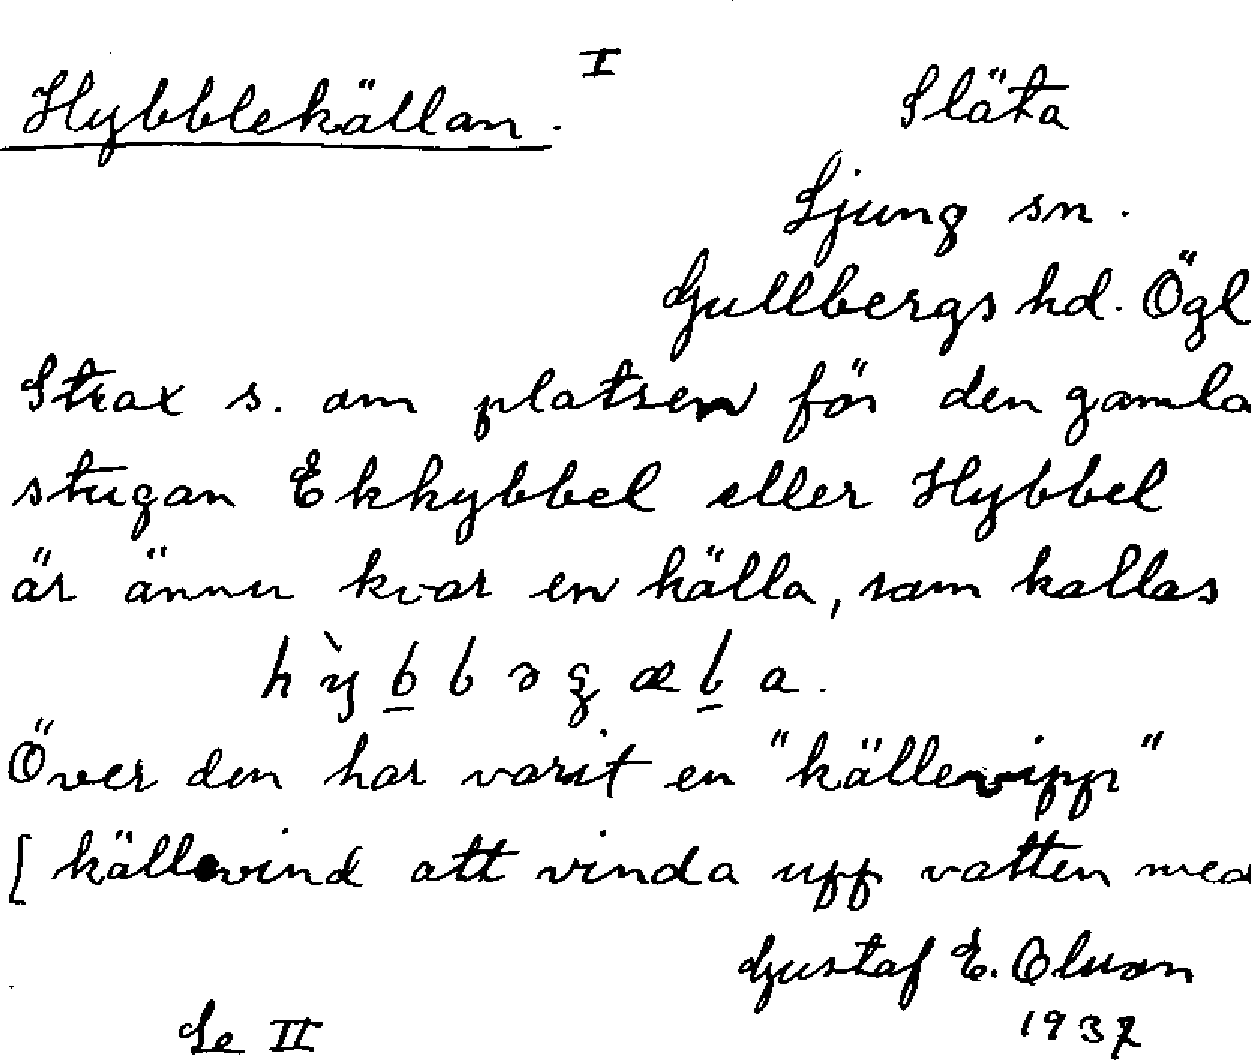 I
Hybblekällan.
Släta
Ljung sn.
Gullbergs hd. Ögl
Strax s. om platsen för den gamla
stugan Ekhybbel eller Hybbel
är ännu kvar en källa, som kallas
hỳbbəgæla.
Över den har varit en "källevipp"
[källevind att vinda upp vatten med
Gustaf E. Olsson
1937
Se II